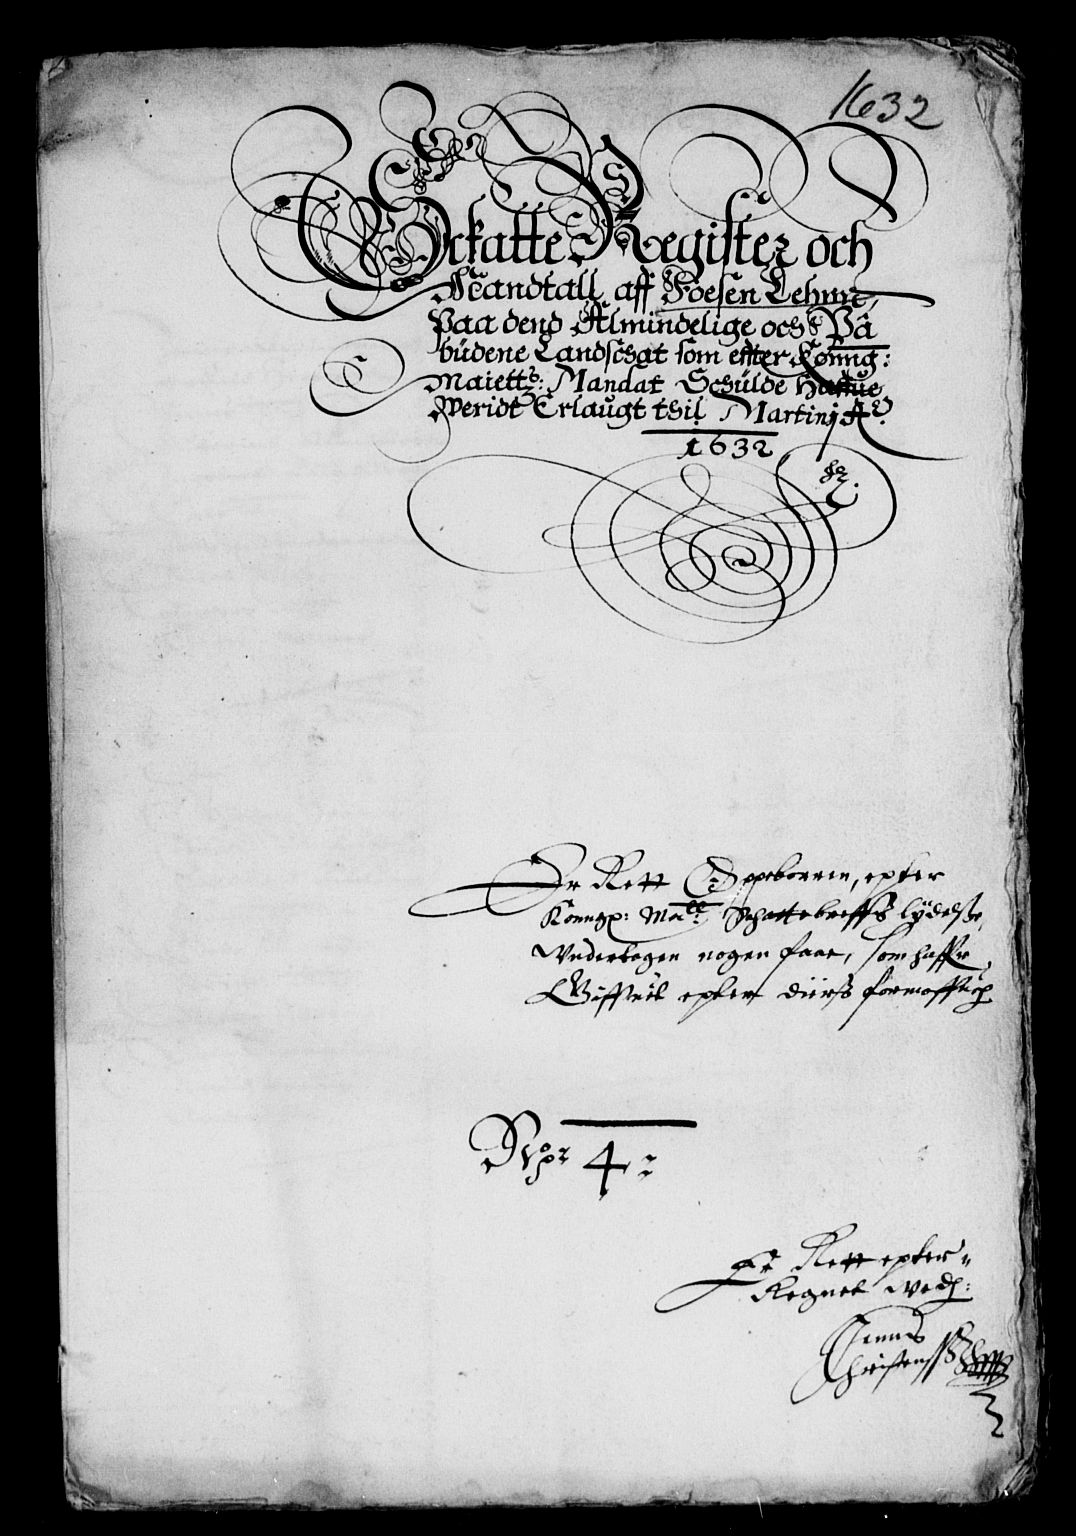 1632
Schatte Register och
Mandtall aff Foesen Lehnn,
Paa dend Almindelige och Pâ
büdene Landschat som effter Konng:
Maiettz: Mandat Schülde Haffue
Weridt Erlaugt thil Martinj Aō.
1632
Er Rett Oppeborren, epter
Konngx: Maÿtt: Schattebreffs lÿdelsße,
Vnderdagen nogen faae, som haffr
epter dürß formoffuch
No: 4
Er Rett epter
Regnet Wedh:
Jenns
Christenß